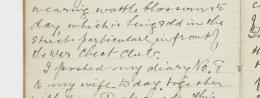 wearing wattle blossom to
day which is being sold in the
streets particularly in front of
the war chest club.
I posted my diary No. 8
to my wife to day together
this